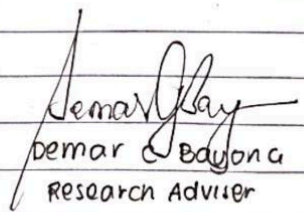 Demar C Bayona
Research Adviser